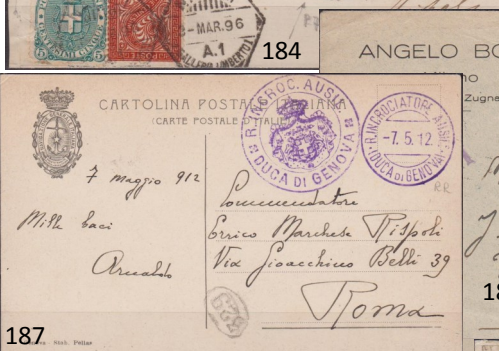 -MAR.96
A.1
184
ANGELO BO
CARTOLINA POSTALE ITALIANA
(CARTE POSTALE D'ITALIE)
R. INCROC. AUSIL.
DUCA DI GENOVA
R. INCROCIATORE AUSIL.
-7.5.12.
(DUCA DI GENOVA)
RR
7 maggio 912
Mille baci
Arnaldo
Commendatore
Enrico Marchese Rispoli
Via Gioacchino Belli 39
Roma
187